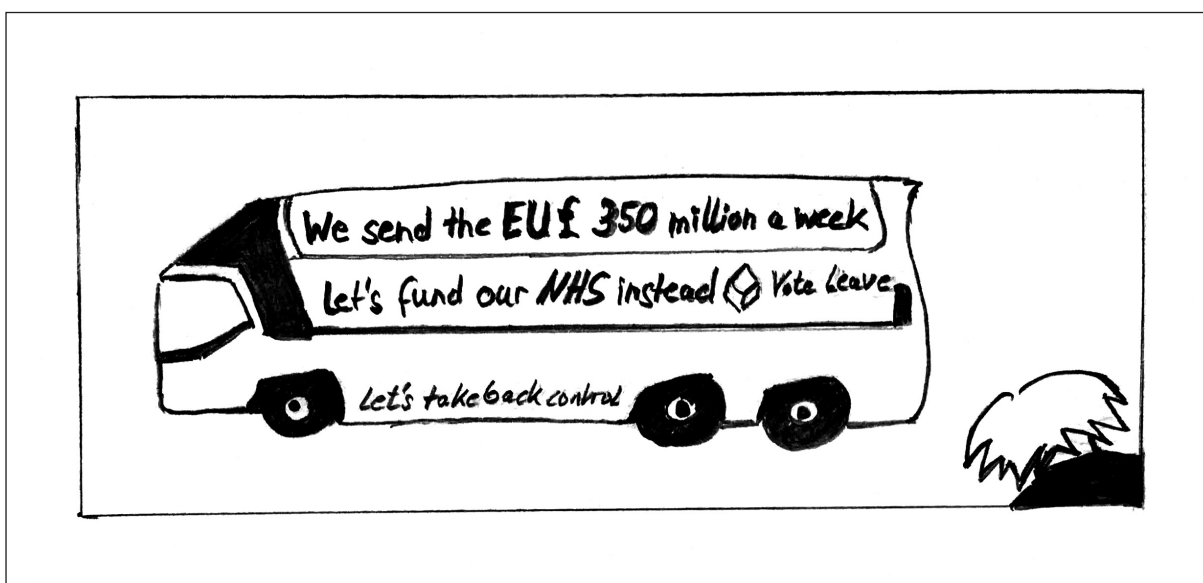 We send the EU £ 350 million a week
Let's fund our NHS instead Vote Leave
Let's take back control